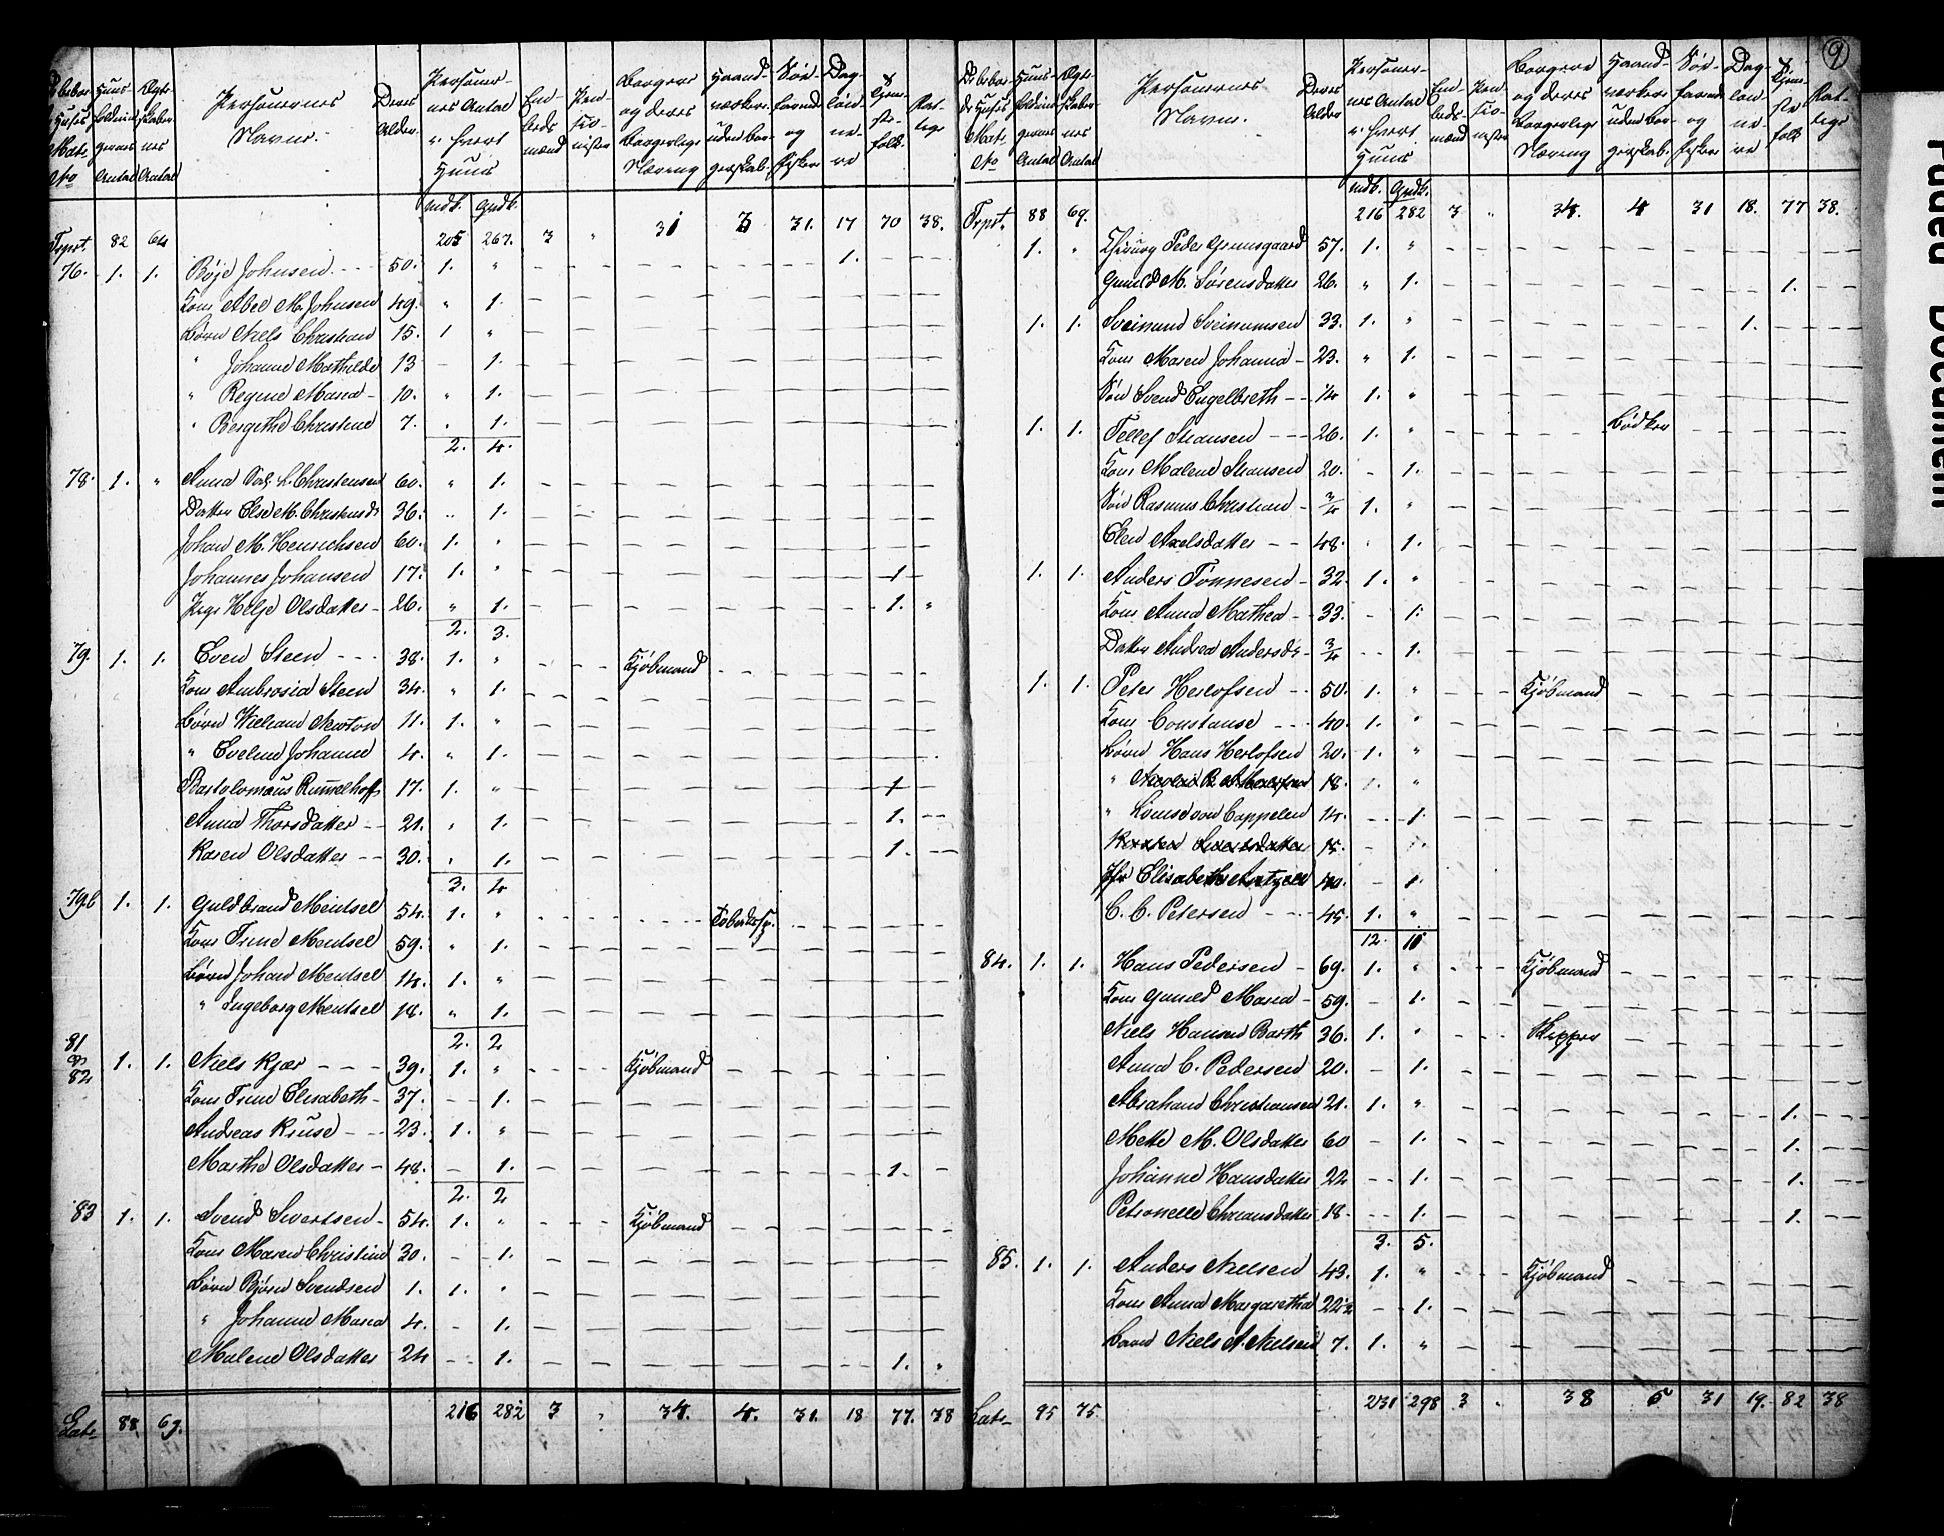 9
De bebo- Huses Mat: No | Huus- holdnin- gernes Antal | Ægte- skaber- nes Antal | Personernes Navne. | Deres Alder. | Personer- nes Antal i hvert Huus | Em- beds- mænd | Pen- sio- nister | Borgere og deres borgerlige Næring | Haand- værkere uden bor- gerskab. | Søe- farende og fisker | Dag- løn- ne- re | Tjene- ste- folk. | Fat- tige
mdk. qvdk.
Trpt. 82 64 205 267. 3 " 31 3 31. 17 70 38.
76. 1. 1. Böje Johnsen 50. 1. " 1.
Kone Abel M. Johnsen 49. " 1.
Börn Niels Christian 15. 1 "
" Johanne Mathilde 13 - 1.
" Regine Maria 10. " 1.
" Bergithe Christine 7. " 1.
2. 4.
78. 1. " Anna L. Christensen 60. " 1.
Datter Else M. Christensdr 36. " 1.
Johan M. Henrichsen 60. 1. "
Johannes Johansen 17. 1. " 1
Helje Olsdatter 26. " 1. 1. "
2. 3.
79. 1. 1. Even Steen 38. 1. " Kjöbmand
Kone Ambrosia Steen 34. " 1.
Börn William Newton 11. 1. "
" Eveline Johanne 4. " 1.
Bartolomäus Rummelhoff 17. 1. " 1
Anna Thorsdatter 21. " 1. 1.
Karen Olsdatter 30. " 1. 1.
3. 4
79b 1. 1. Guldbrand Mentsel 54. 1. "
Kone Trine Mentsel 59. " 1.
Börn Johan Mentsel 14. 1. "
" Ingeborg Mentsel 18. " 1.
2. 2
81 og 82 1. 1. Niels Kjær 39. 1. " Kjöbmand
Kone Trine Elisabeth 37. - 1.
Andreas Kruse 23. 1. "
Marthe Olsdatter 48. - 1. 1.
2. 2
83 1. 1. Svend Sivertsen 54. 1. " Kjöbmand
Kone Maren Christine 30. - 1.
Börn Björn Svendsen 1. 1. "
" Johanne Maria 4. - 1.
Malene Olsdatter 24 - 1. 1. "
Lat: 88. 69. 216 282 3 " 34. 4. 31. 18 77. 38
De bebo- de Huses Mat: No | Huus- holdnin- gernes Antal | Ægte- skaber- nes Antal | Personernes Navne. | Deres Alder | Personer- nes Antal i hvert Huus | Em- beds- mænd | Pen- sio- nister | Borgere og deres borgerlige Næring | Haand- værkere uden bor- gerskab. | Søe- farende og fisker | Dag- løn- ne- re | Tjene- ste- folk | Fat- tige
mdk. qvdk.
Trpt. 88 69. 216 282 3 " 34. 4 31 18. 77 38.
1. " Peder Grumsgaard 57. 1. "
Gunild M. Sörensdatter 26. " 1. 1.
1. 1. Sveinund Sveinumsen 33. 1. " 1.
Kone Maren Johanna 23. " 1.
Sön Svend Engelbreth 1/4 1. "
1. 1. Tellef Stransen 26. 1. " Bödker
Kone Malene Stransen 20. - 1.
Sön Rasmus Christian 3/4 1. "
Elen Axelsdatter 48. " 1.
1. 1. Anders Tönnesen 32. 1. "
Kone Anna Mathea 33. - 1.
Datter Andrea Andersdr 3/4 - 1.
1. 1. Peter Herlofsen 50. 1. " Kjöbmand
Kone Constanse 40. 1. "
Börn Hans Herlofsen 20. 1. "
" 18. 1. "
" Lovise von Cappelen 14. - 1.
15. - 1.
Jfr Elisabeth 40. - 1.
C. C. Petersen 45. 1. "
12. 11
84. 1. 1. Hans Pedersen 69. 1. " Kjöbmand
Kone Gunild Maria 59. - 1.
Niels Hansen Barth 36. 1. " Skipper
Anna C. Pedersen 20. - 1.
Abraham Christiansen 21. 1. " 1.
Mette M. Olsdatter 60 - 1. 1.
Johanne Hansdatter 22 - 1. 1.
Petronelle Chriansdatter 18. - 1. 1.
3. 5.
85. 1. 1. Anders Nielsen 43. 1. " Kjöbmand
Kone Anna Margaretha 22 1/2 - 1.
Barn Niels A. Nielsen 7. 1. "
Lat: 95 75. 231 298 3 " 38 5 31 19. 82 38
Faded Document